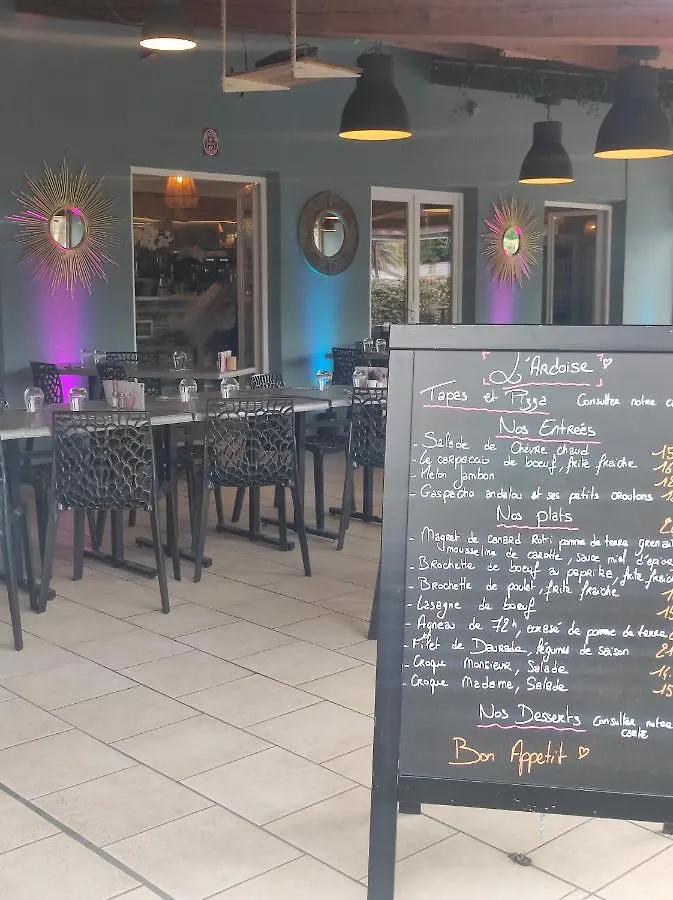 L'Ardoise
Tapas et Pizza Consulter notre c
Nos Entrées
- Salade de Chèvre chaud 15
- Le carpaccio de boeuf, frite fraiche 16
- Melon jambon
- Gaspacho andalou et ses petits croutons
Nos plats
- Magret de canard Roti pomme de terre grenai
mousseline de carotte, sauce miel d'épice
- Brochette de boeuf au paprika, frite fraich
- Brochette de poulet, frite fraiche
- Lasagne de boeuf 15
- Agneau de 72h, ecrasé de pomme de terre
- Filet de Daurade, légumes de saison 21
- Croque Monsieur, Salade 14
- Croque Madame, Salade 15
Nos Desserts Consulter notre
carte
Bon Appetit